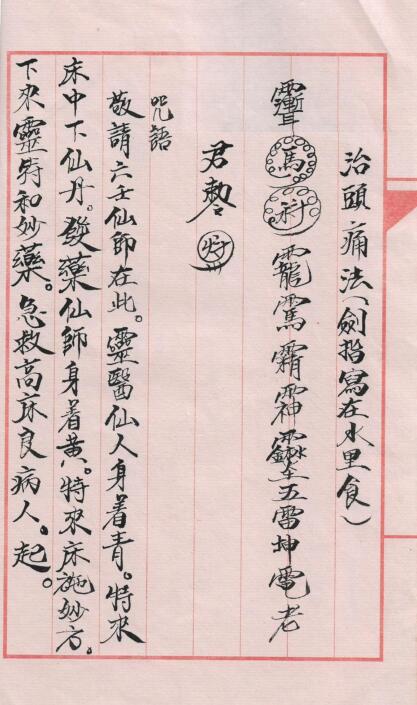 治頭痛法(劍指寫在水里食)
馬 靇 霜 五雷坤電老
君勅
咒語
敬請六壬仙師在此。靈醫仙人身着青。特來
床中下仙丹。發藥仙師身着黃。特來床施妙方。
下來靈符和妙藥。急救高床良病人。起。